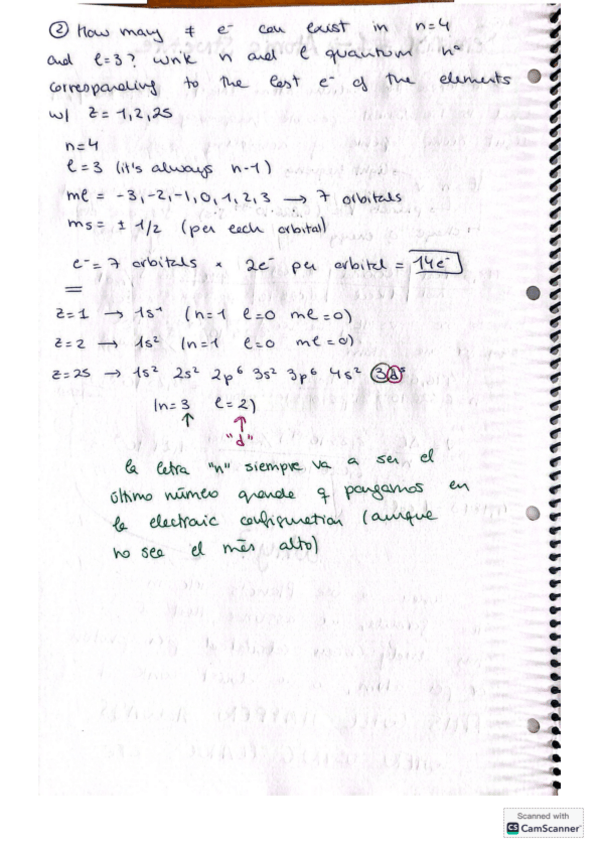 ② How many ≠ e⁻ can exist in n=4
and l=3? Write n and l quantum nº
corresponding to the last e⁻ of the elements
w/ z = 1, 2, 25
n=4
l=3 (it's always n-1)
ml = -3, -2, -1, 0, 1, 2, 3 → 7 orbitals
ms = ± 1/2 (per each orbital)
e⁻ = 7 orbitals × 2e⁻ per orbital = 14e⁻
z=1 → 1s¹ (n=1 l=0 ml=0)
z=2 → 1s² (n=1 l=0 ml=0)
z=25 → 1s² 2s² 2p⁶ 3s² 3p⁶ 4s² 3d⁵
(n=3 l=2)
"d"
la letra "n" siempre va a ser el
último número grande q pongamos en
la electronic configuration (aunque
no sea el más alto)
Scanned with
CS CamScanner